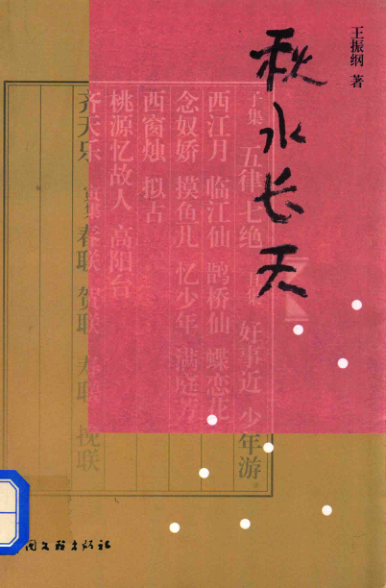 王振纲 著
秋水长天
子集 五律 七绝 集 好事近 少年游
西江月 临江仙 鹊桥仙 蝶恋花
念奴娇 摸鱼儿 忆少年 满庭芳
西窗烛 拟古
桃源忆故人 高阳台
齐天乐 寅集 春联 贺联 寿联 挽联
国文联出版社